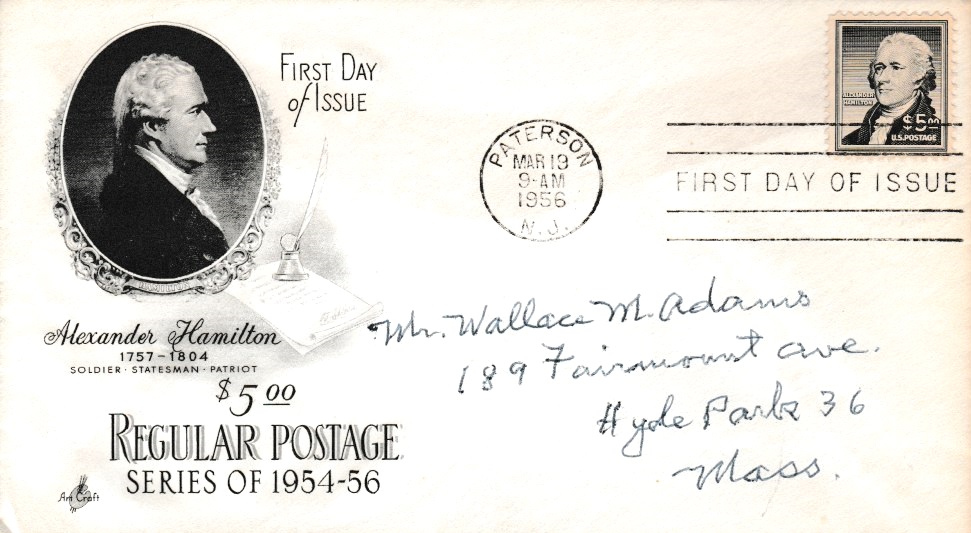 FIRST DAY
of ISSUE
Alexander Hamilton
1757-1804
SOLDIER · STATESMAN · PATRIOT
$5 00
REGULAR POSTAGE
SERIES OF 1954-56
Art Craft
PATERSON
MAR 19
9-AM
1956
N.J.
ALEXANDER
HAMILTON
$5
U.S. POSTAGE
FIRST DAY OF ISSUE
Mr. Wallace M. Adams
189 Fairmount ave.
Hyde Park 36
Mass.